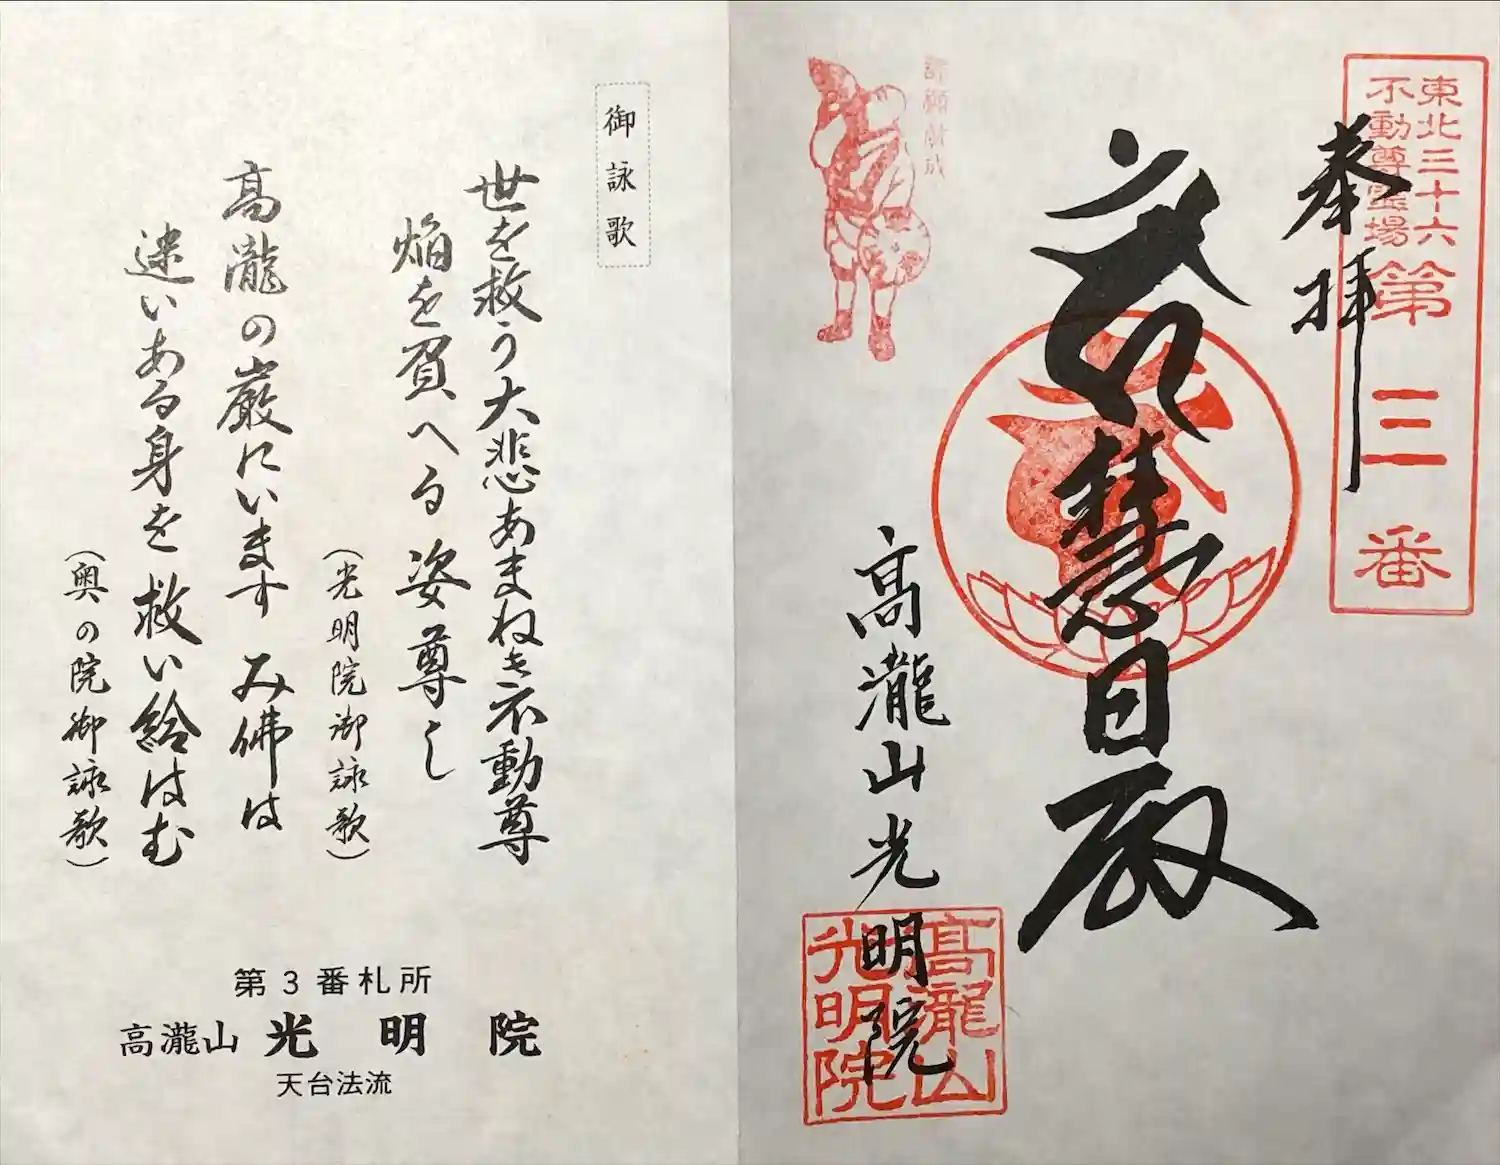 東北三十六
不動尊霊場
第三番
奉拝
慧日殿
高瀧山光明院
高瀧山
光明院
御詠歌
世を救う大悲あまねき不動尊
焔を負へる姿尊し
(光明院御詠歌)
高瀧の巌にいます み佛は
迷いある身を救い給はむ
(奥の院御詠歌)
第3番札所
高瀧山 光明院
天台法流